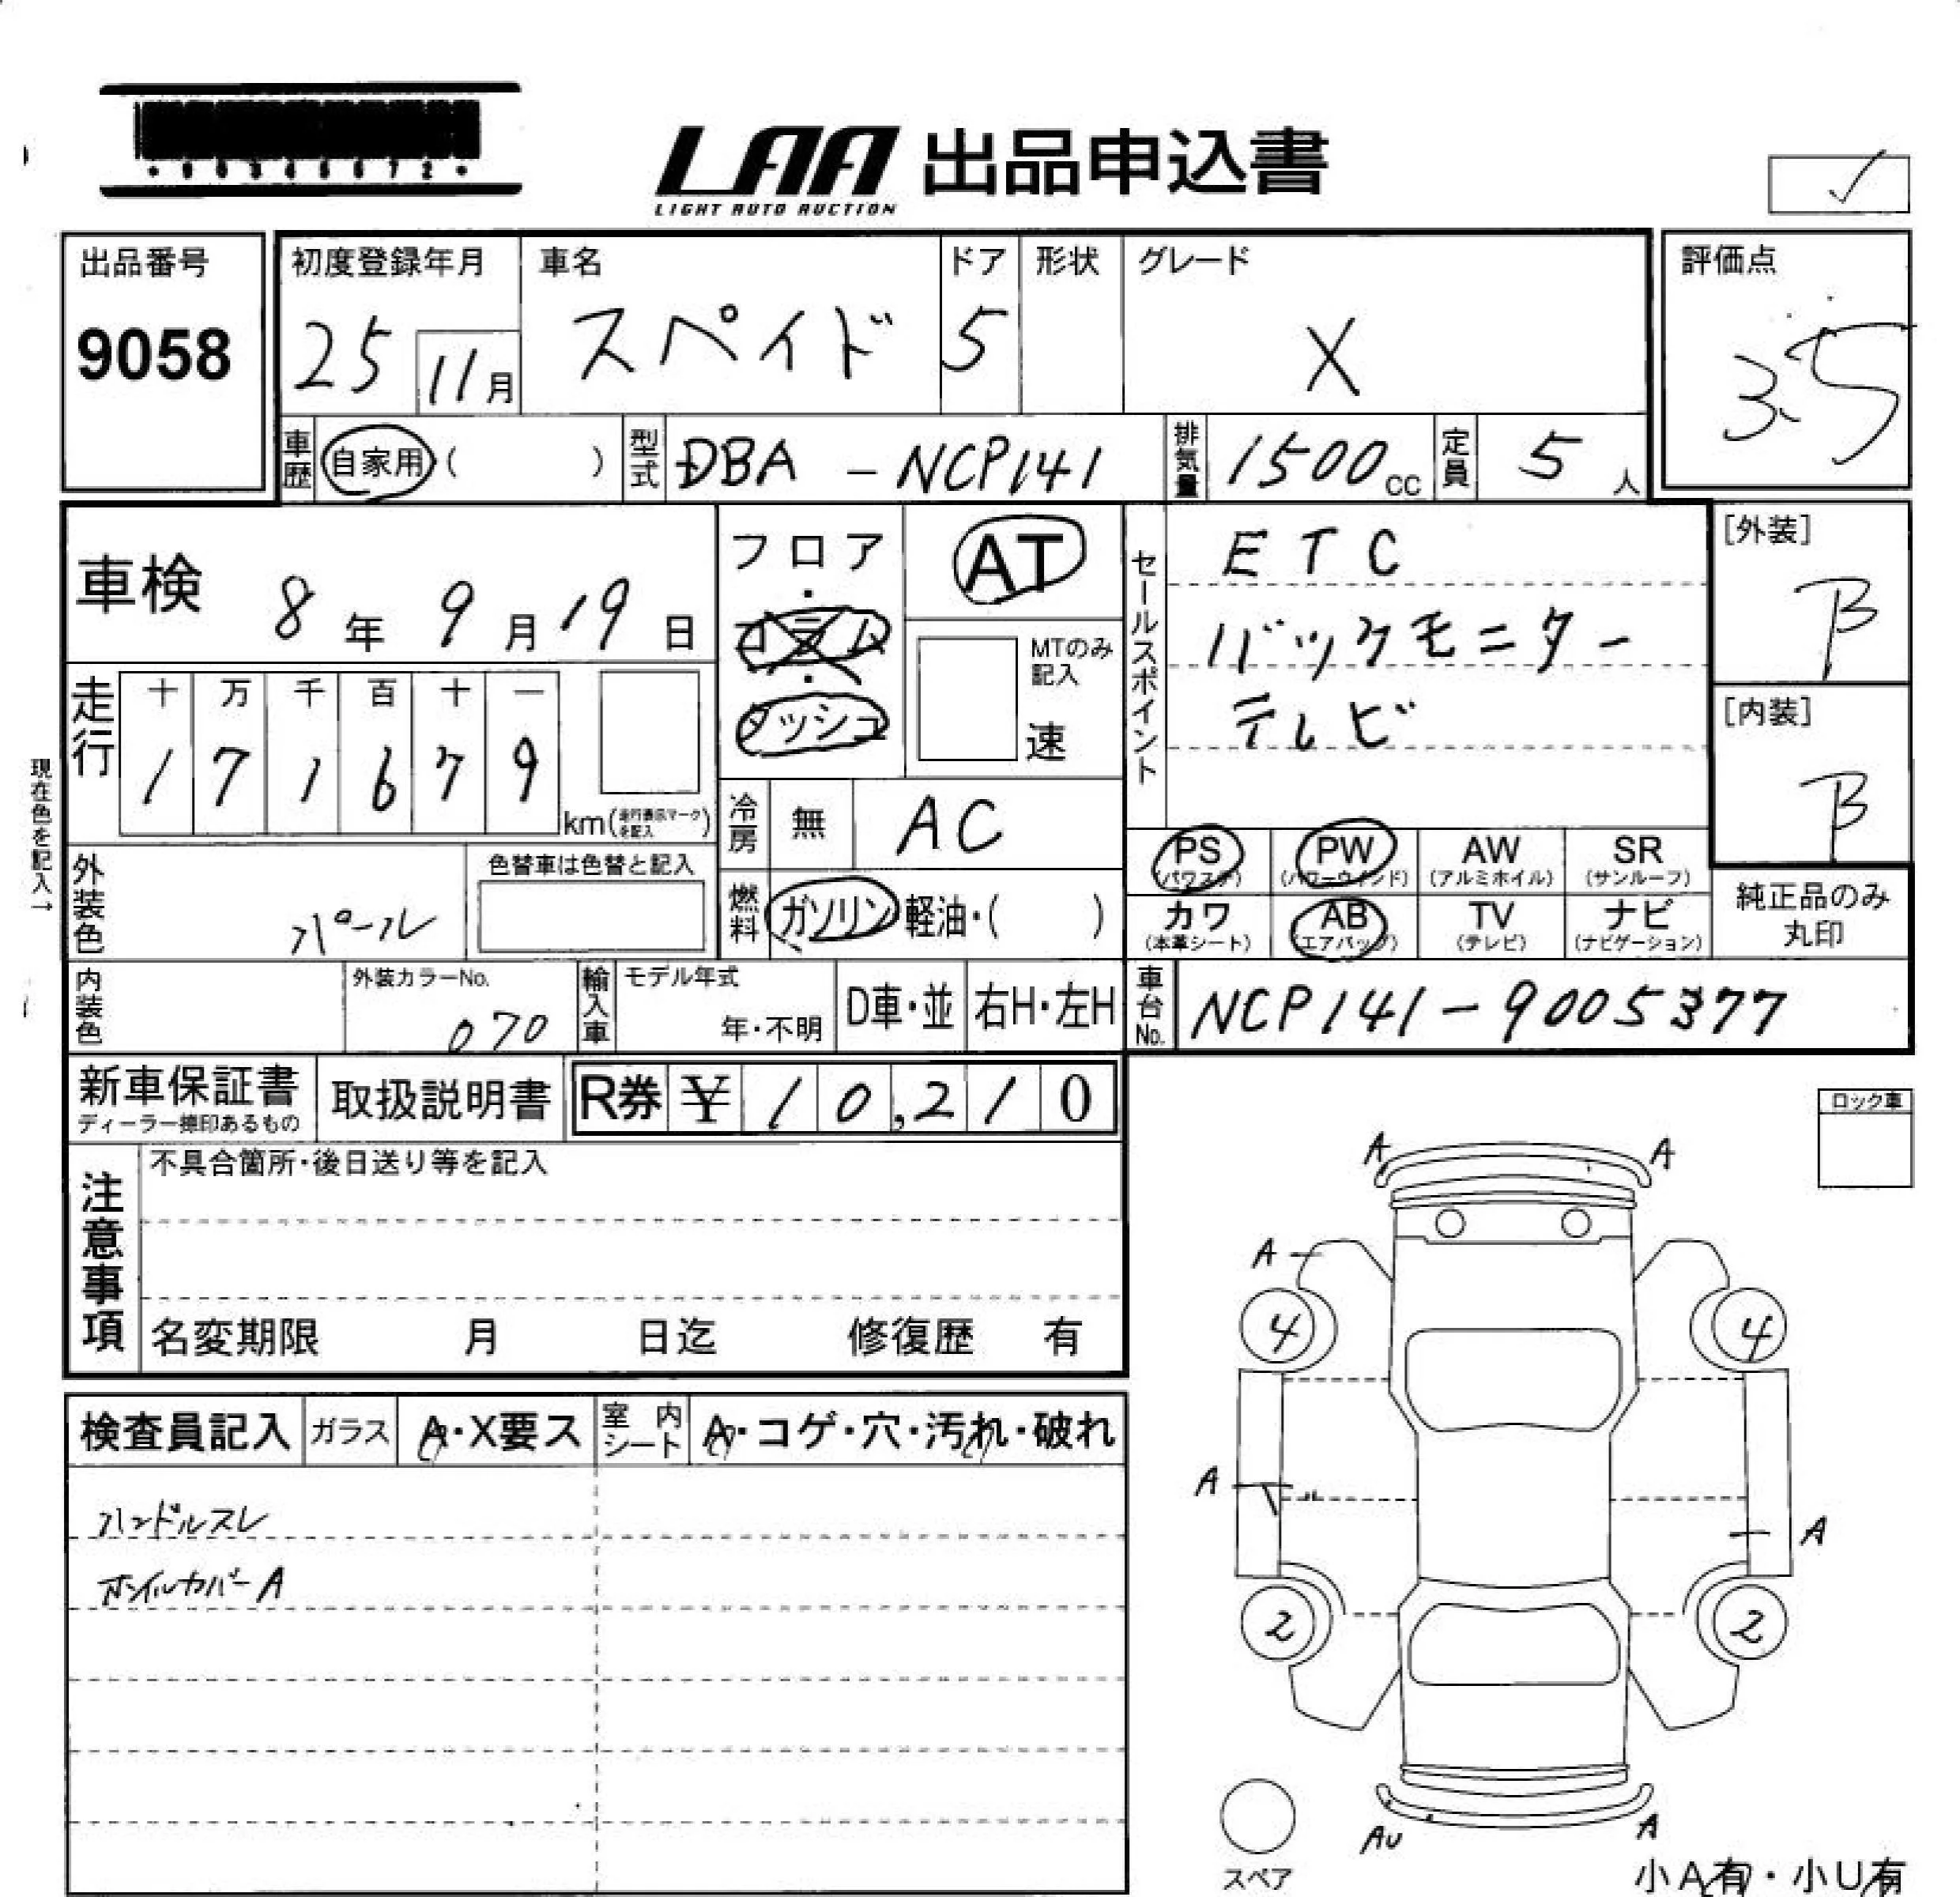 LAA 出品申込書
LIGHT AUTO AUCTION
✓
出品番号
9058
初度登録年月
25 11月
車名
スペイド
ドア
5
形状
グレード
X
評価点
3.5
車歴 自家用 ( )
型式 DBA - NCP141
排気量 1500 cc
定員 5 人
車検 8年 9月 19日
フロア・コラム・ダッシュ
AT
MTのみ記入
速
セールスポイント
ETC
バックモニター
テレビ
[外装]
B
[内装]
B
走行
十 万 千 百 十 一
1 7 1 6 7 9
km(走行表示マークを記入)
現在色を記入→
冷房 無 AC
外装色 パール
色替車は色替と記入
燃料 ガソリン 軽油・( )
PS (パワステ)
PW (パワーウインド)
AW (アルミホイル)
SR (サンルーフ)
カワ (本革シート)
AB (エアバッグ)
TV (テレビ)
ナビ (ナビゲーション)
純正品のみ
丸印
内装色
外装カラーNo.
070
輸入車
モデル年式
年・不明
D車・並
右H・左H
車台No. NCP141-9005377
新車保証書
ディーラー捺印あるもの
取扱説明書
R券 ¥ 10,210
ロック車
注意事項
不具合箇所・後日送り等を記入
名変期限 月 日迄 修復歴 有
検査員記入
ガラス A・X要ス
室内シート A・コゲ・穴・汚れ・破れ
ハンドルスレ
ホイルカバーA
A A
A
4 4
A
A
2 2
AU A
スペア
小A有・小U有